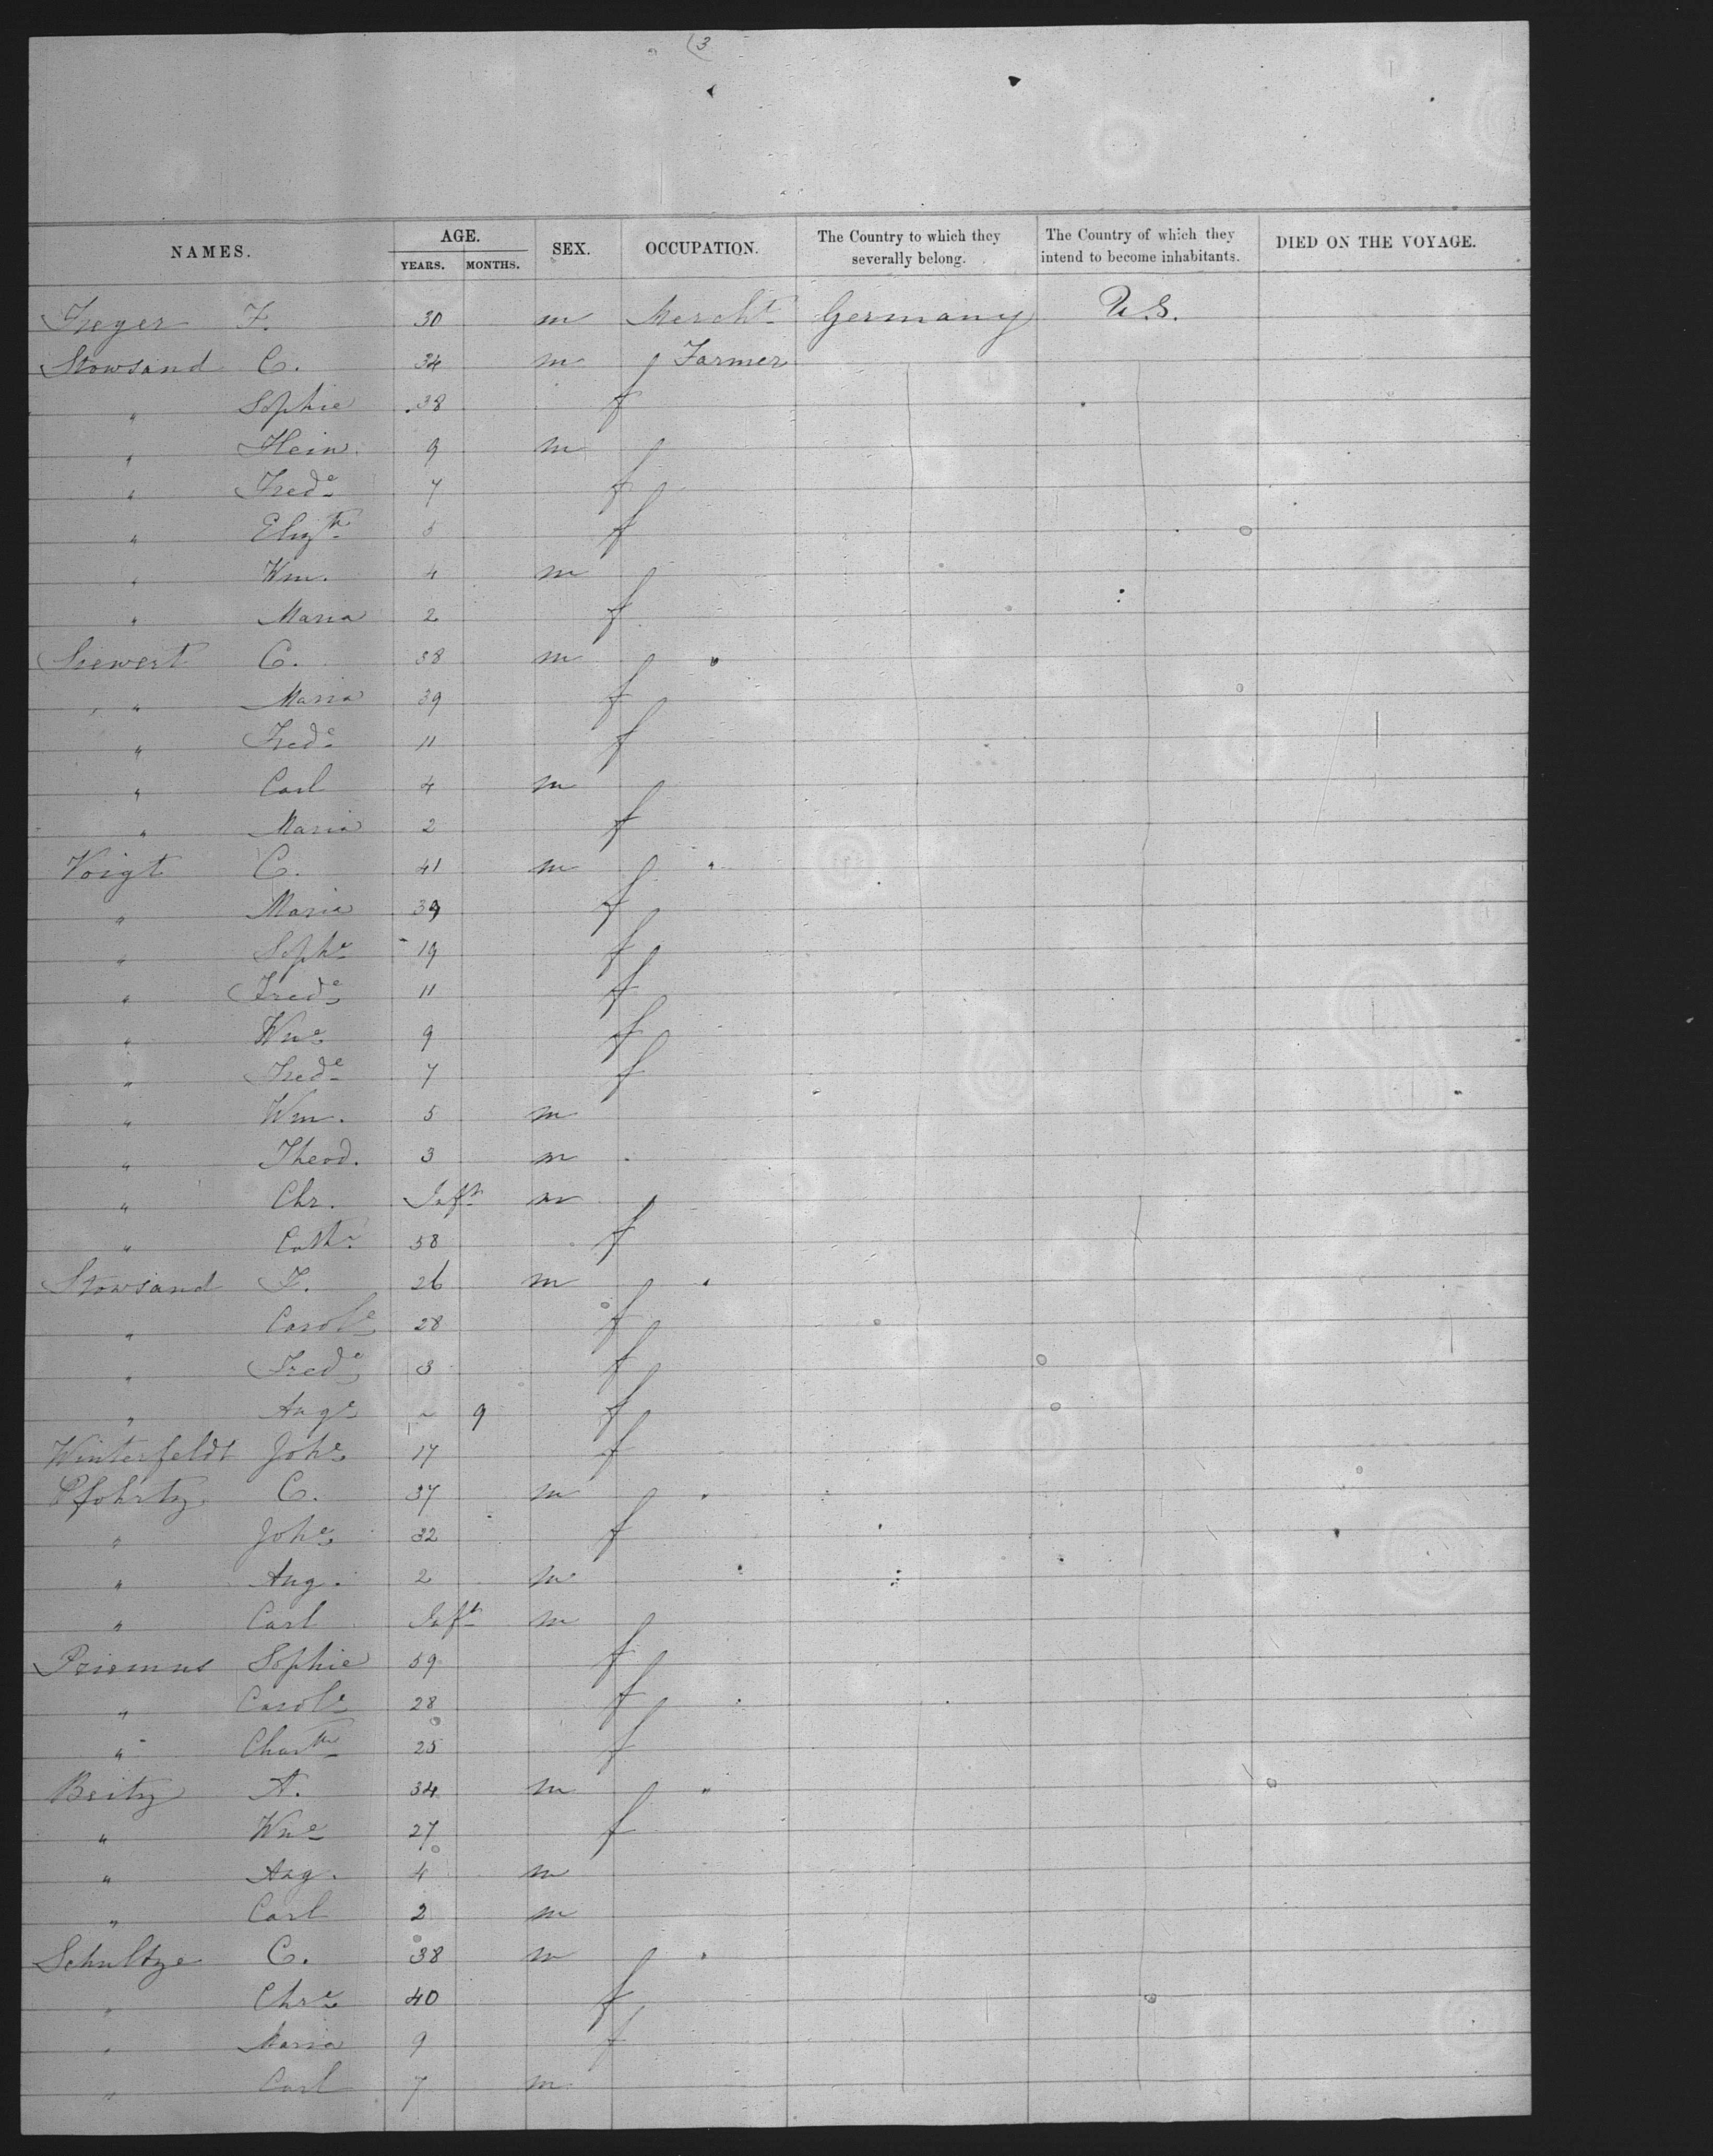 (3
NAMES. AGE. YEARS. MONTHS. SEX. OCCUPATION. The Country to which they severally belong. The Country of which they intend to become inhabitants. DIED ON THE VOYAGE.
Freyer F. 30 m Mercht Germany U.S.
Stowsand C. 34 m Farmer
" Sophie 38 f
" Hein. 9 m
" Frede 7 f
" Elizth 5 f
" Wm. 4 m
" Maria 2 f
Siewert C. 38 m "
" Maria 39 f
" Frede 11 f
" Carl 4 m
" Maria 2 f
Voigt C. 41 m "
" Maria 39 f
" Sophe 19 f
" Frede 11 f
" Wne 9 f
" Frede 7 f
" Wm. 5 m
" Theod. 3 m
" Chr. Inft m
" Cathe 58 f
Stowsand F. 26 m "
" Carole 28 f
" Frede 3 f
" Auge " 9 f
Winterfeldt Johe 17 f
Pfohrtz C. 37 m "
" Johe 32 f
" Aug. 2 m
" Carl Inft m
Priemus Sophie 59 f
" Carole 28 f
" Chartte 25 f
Beitz A. 34 m "
" Wne 27 f
" Aug. 4 m
" Carl 2 m
Schultze C. 38 m "
" Chre 40 f
" Maria 9 f
" Carl 7 m